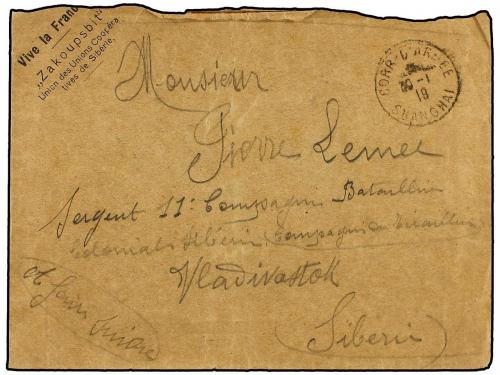 Vive la Franc
„Zakoupsbit"
Union des Unions Coopéra
tives de Sibérie,
CORR. D'ARMEE
-1
19
SHANGHAI
Monsieur
Pierre Lemee
Sergent 11e Compagnie Bataillon
Colonial Sibérie (Compagnie
Vladivostok
(Sibérie)